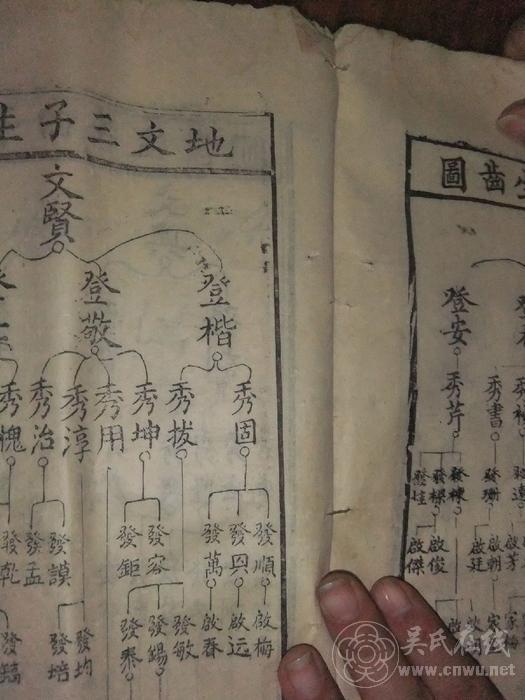 地文三子生
文賢
登楷
登敬
秀固
秀拔
秀坤
秀用
秀淳
秀治
秀槐
發順
發恩
發萬
發容
發鉅
發謨
發孟
發乾
啟梅
啟远
啟春
發敏
發錫
發泰
發均
發培
齒圖
登安
秀芹
秀書
發棟
發樑
發桂
發珊
啟俊
啟傑
啟朝
啟廷
吴氏在线
www.cnwu.net